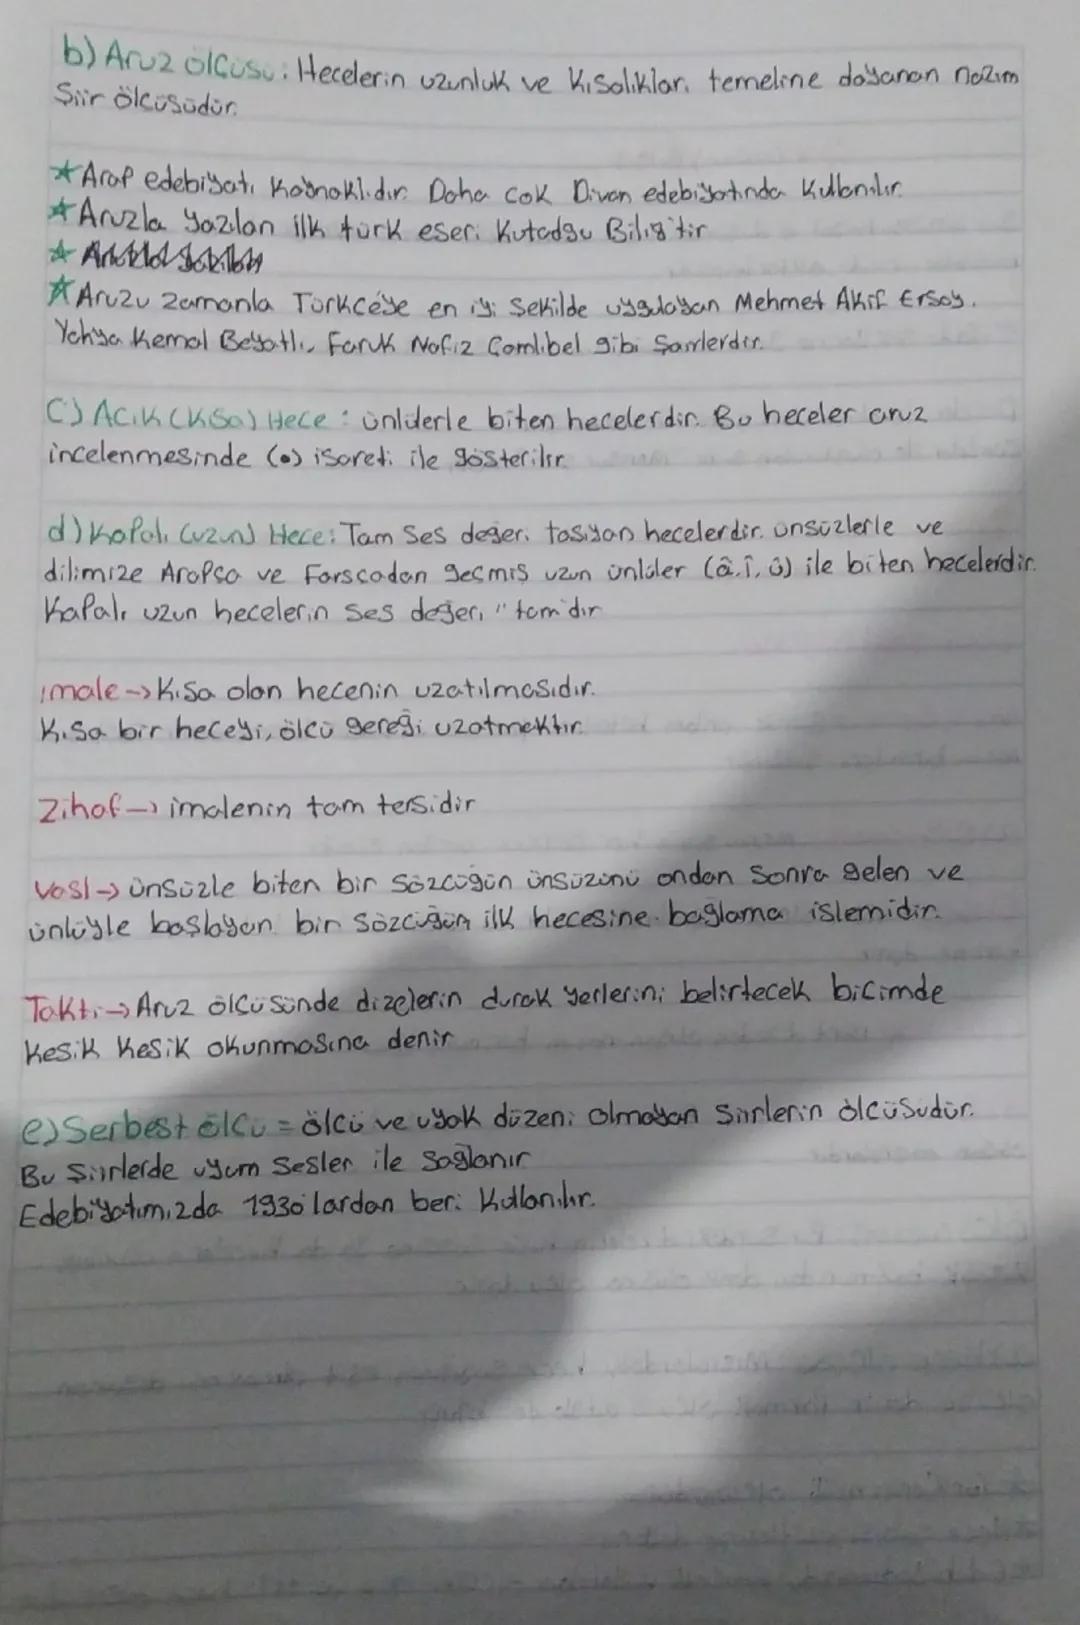 b) Aruz ölçüsü: Hecelerin uzunluk ve kısalıkları temeline dayanan nazım
Şiir ölçüsüdür.
★ Arap edebiyatı kaynaklıdır. Daha çok Divan edebiyatında kullanılır.
★ Aruzla yazılan ilk türk eseri Kutadgu Bilig'tir
★ Aruzu zamanla Türkçeye en iyi şekilde uygulayan Mehmet Akif Ersoy,
Yahya Kemal Beyatlı, Faruk Nafiz Çamlıbel gibi şairlerdir.
C) Açık (kısa) Hece: ünlülerle biten hecelerdir. Bu heceler aruz
incelenmesinde (•) işareti ile gösterilir.
d) Kapalı (uzun) Hece: Tam Ses değeri taşıyan hecelerdir. ünsüzlerle ve
dilimize Arapça ve Farsçadan geçmiş uzun ünlüler (â, î, û) ile biten hecelerdir.
Kapalı uzun hecelerin ses değeri "tam'dır
imale → Kısa olan hecenin uzatılmasıdır.
Kısa bir heceyi, ölçü gereği uzatmektır.
Zihaf → imalenin tam tersidir
Vasl → ünsüzle biten bir sözcüğün ünsüzünü ondan sonra gelen ve
ünlüyle başlayan bir sözcüğün ilk hecesine bağlama işlemidir.
Taktı → Aruz ölçüsünde dizelerin durak yerlerini belirtecek biçimde
kesik kesik okunmasına denir
e) Serbest ölçü = ölçü ve uyak düzeni olmayan şiirlerin ölçüsüdür.
Bu şiirlerde uyum sesler ile sağlanır
Edebiyatımızda 1930'lardan beri kullanılır.